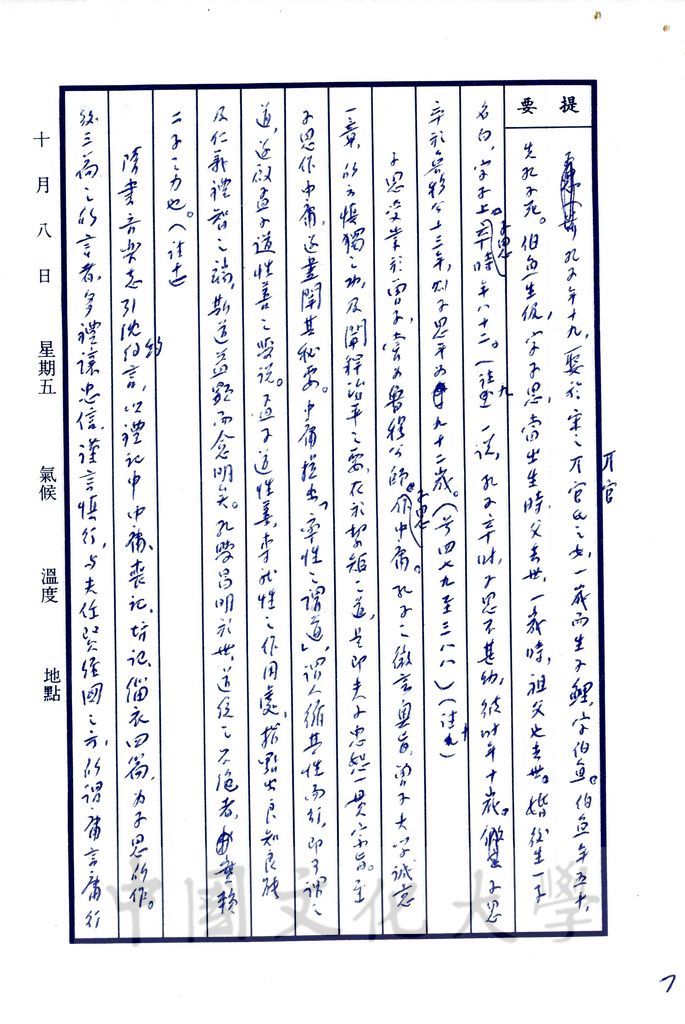 提要
孔子年十九，娶於宋之亓官氏之女，一歲而生子鯉，字伯魚。伯魚年五十，
亓官
先孔子死。伯魚生伋，字子思，當出生時，父去世，一歲時，祖父也去世。婚後生一子
名白，字子上。子思卒時年八十二。（註九）一說，孔子卒時，子思不甚幼，彼時年十歲。子思
卒於魯穆公十三年，則子思年為九十二歲。（前四七九至三八八）（註十）
子思受業於曾子，嘗為魯穆公師。子思作中庸。孔子之微言奧旨，曾子大學誠意
一章，以示慎獨之功，及闡釋治平之要，在於絜矩之道，是即夫子忠恕一貫宗旨。至
子思作中庸，遂盡開其秘要。中庸提出「率性之謂道」，謂人循其性而行，即可謂之
道，遂啟孟子道性善之學說。孟子道性善，李就性之作用處，指點出良知良能
及仁義禮智之端，斯道益顯而愈明矣。孔學昌明於世，道統之不絕者，實賴
二子之力也。（註十一）
隋書音樂志引沈約言，以禮記中中庸、表記、坊記、緇衣四篇，為子思所作。
後三篇之所言者，多禮讓忠信，謹言慎行，與夫任賢經國之方，所謂庸言庸行
十月八日 星期五 氣候 溫度 地點
中國文化大學
7